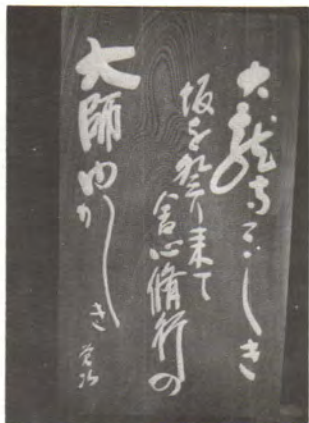 太龍寺こゞしき
坂を登り来て
舎心脩行の
大師ゆかしき